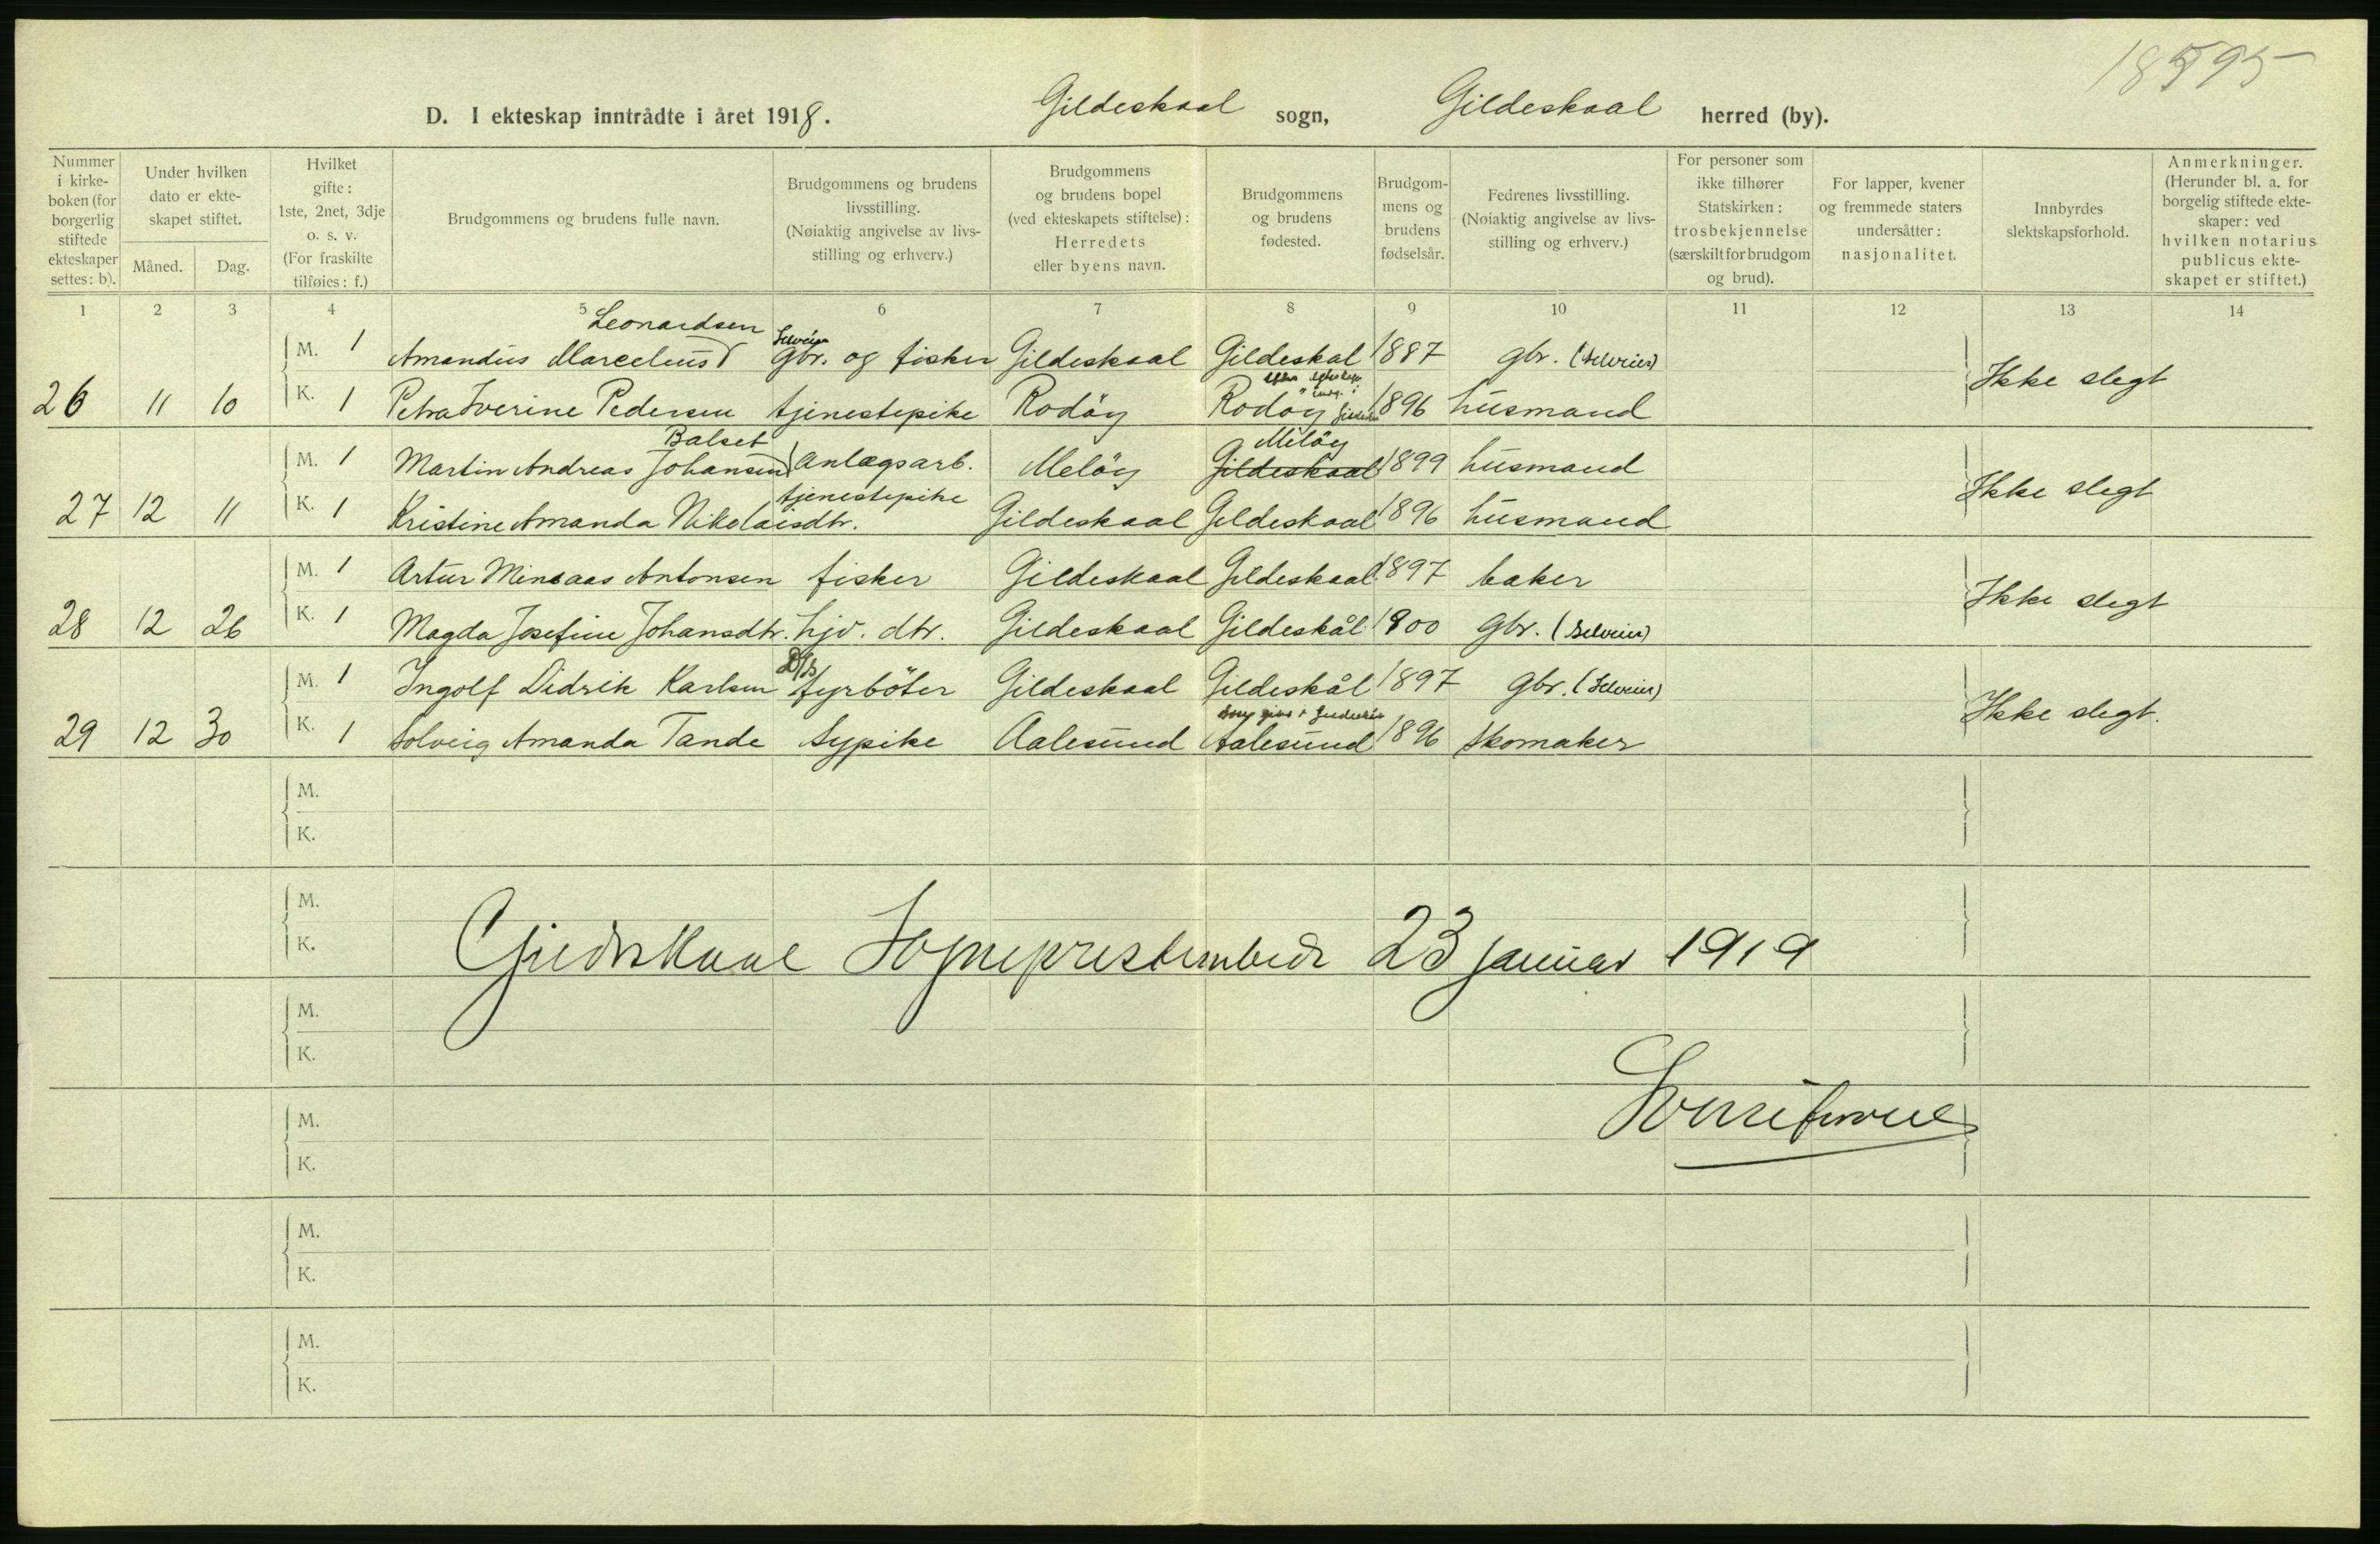 18595
D. I ekteskap inntrådte i året 1918. Gildeskaal sogn, Gildeskaal herred (by).
Nummer i kirkeboken (for borgerlig stiftede ekteskaper settes: b).
Under hvilken dato er ekteskapet stiftet.
Måned. Dag.
Hvilket gifte: 1ste, 2net, 3dje o. s. v. (For fraskilte tilføies: f.)
Brudgommens og brudens fulle navn.
Brudgommens og brudens livsstilling. (Nøiaktig angivelse av livsstilling og erhverv.)
Brudgommens og brudens bopel (ved ekteskapets stiftelse): Herredets eller byens navn.
Brudgommens og brudens fødested.
Brudgommens og brudens fødselsår.
Fedrenes livsstilling. (Nøiaktig angivelse av livsstilling og erhverv.)
For personer som ikke tilhører Statskirken: trosbekjennelse (særskilt for brudgom og brud).
For lapper, kvener og fremmede staters undersåtter: nasjonalitet.
Innbyrdes slektskapsforhold.
Anmerkninger. (Herunder bl. a. for borgelig stiftede ekteskaper: ved hvilken notarius publicus ekteskapet er stiftet.)
1 2 3 4 5 6 7 8 9 10 11 12 13 14
Leonardsen Selveier
M. 1 Amandus Marcelius gbr. og fisker Gildeskaal Gildeskal 1887 gbr. (Selveier)
26 11 10 K. 1 Petra Iverine Pedersen tjenestepike Rodöy Rodöy 1896 husmand Ikke slegt
Balset Melöy
M. 1 Martin Andreas Johansen Anlægsarb. Melöy Gildeskaal 1899 husmand
tjenestepike
27 12 11 K. 1 Kristine Amanda Nikolaisdtr. Gildeskaal Gildeskaal 1896 husmand Ikke slegt
M. 1 Artur Mineaas Antonsen fisker Gildeskaal Gildeskaal 1897 baker
28 12 26 K. 1 Magda Josefine Johansdtr. hjv. dtr. Gildeskaal Gildeskål 1900 gbr. (Selveier) Ikke slegt
D/S
M. 1 Ingolf Didrik Karlsen fyrböter Gildeskaal Gildeskål 1897 gbr. (Selveier)
29 12 30 K. 1 Solveig Amanda Tande Sypike Aalesund Aalesund 1896 Skomaker Ikke slegt.
M.
K.
M.
K.
Gildeskaal Sogneprestembede 23 januar 1919
M.
K.
M.
K.
M.
K.
M.
K.